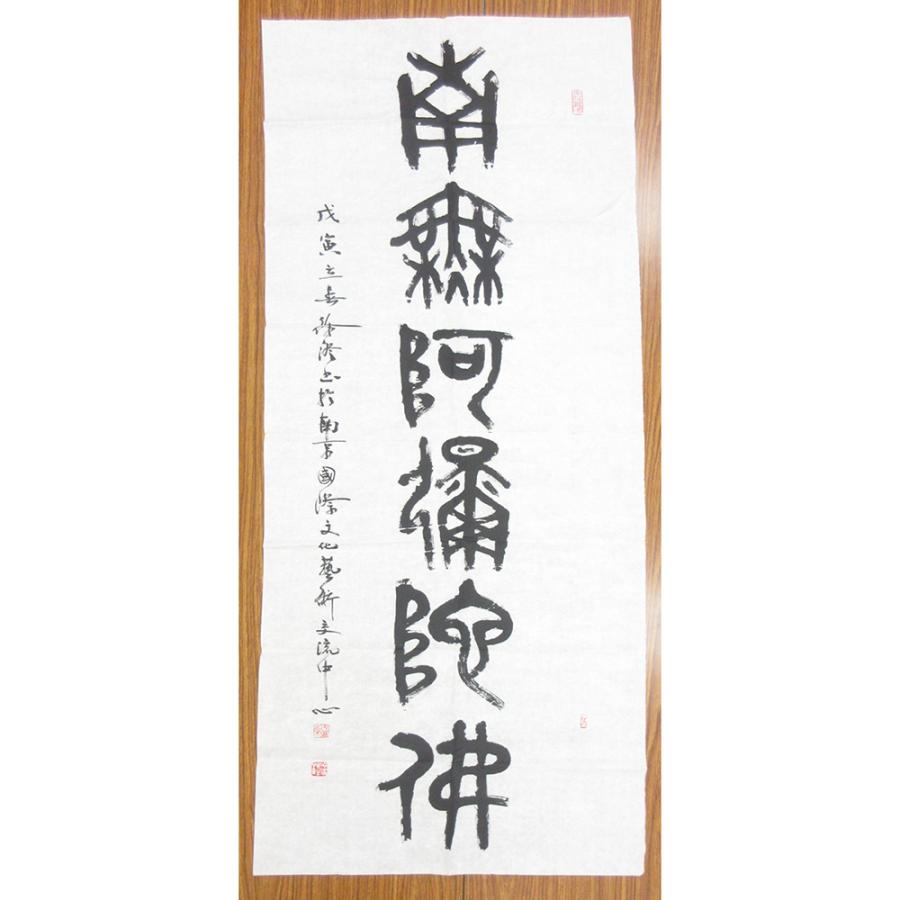 南無阿彌陀佛
戊寅立春徐隆書於南京國際文化藝術交流中心